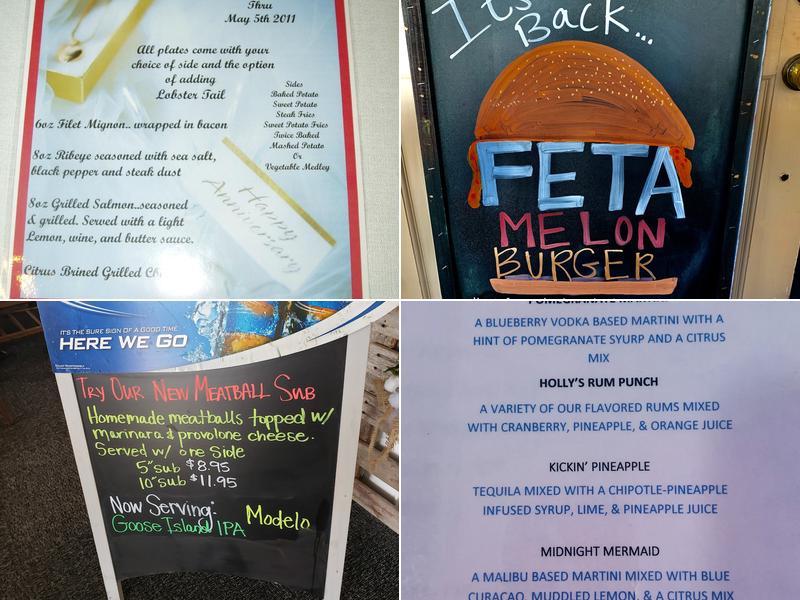 Thru
May 5th 2011
All plates come with your
choice of side and the option
of adding
Lobster Tail
Sides
Baked Potato
Sweet Potato
Steak Fries
Sweet Potato Fries
Twice Baked
Mashed Potato
Or
Vegetable Medley
6oz Filet Mignon.. wrapped in bacon
8oz Ribeye seasoned with sea salt,
black pepper and steak dust
8oz Grilled Salmon..seasoned
& grilled. Served with a light
Lemon, wine, and butter sauce.
Citrus Brined Grilled
Happy
Anniversary
It's
Back...
FETA
MELON
BURGER
IT'S THE SURE SIGN OF A GOOD TIME
HERE WE GO
Try Our New Meatball Sub
Homemade meatballs topped w/
marinara & provolone cheese.
Served w/ one Side
5" sub $8.95
10" sub $11.95
Now Serving:
Goose Island IPA
Modelo
POMEGRANATE
A BLUEBERRY VODKA BASED MARTINI WITH A
HINT OF POMEGRANATE SYURP AND A CITRUS
MIX
HOLLY'S RUM PUNCH
A VARIETY OF OUR FLAVORED RUMS MIXED
WITH CRANBERRY, PINEAPPLE, & ORANGE JUICE
KICKIN' PINEAPPLE
TEQUILA MIXED WITH A CHIPOTLE-PINEAPPLE
INFUSED SYRUP, LIME, & PINEAPPLE JUICE
MIDNIGHT MERMAID
A MALIBU BASED MARTINI MIXED WITH BLUE
CURACAO, MUDDLED LEMON, & A CITRUS MIX